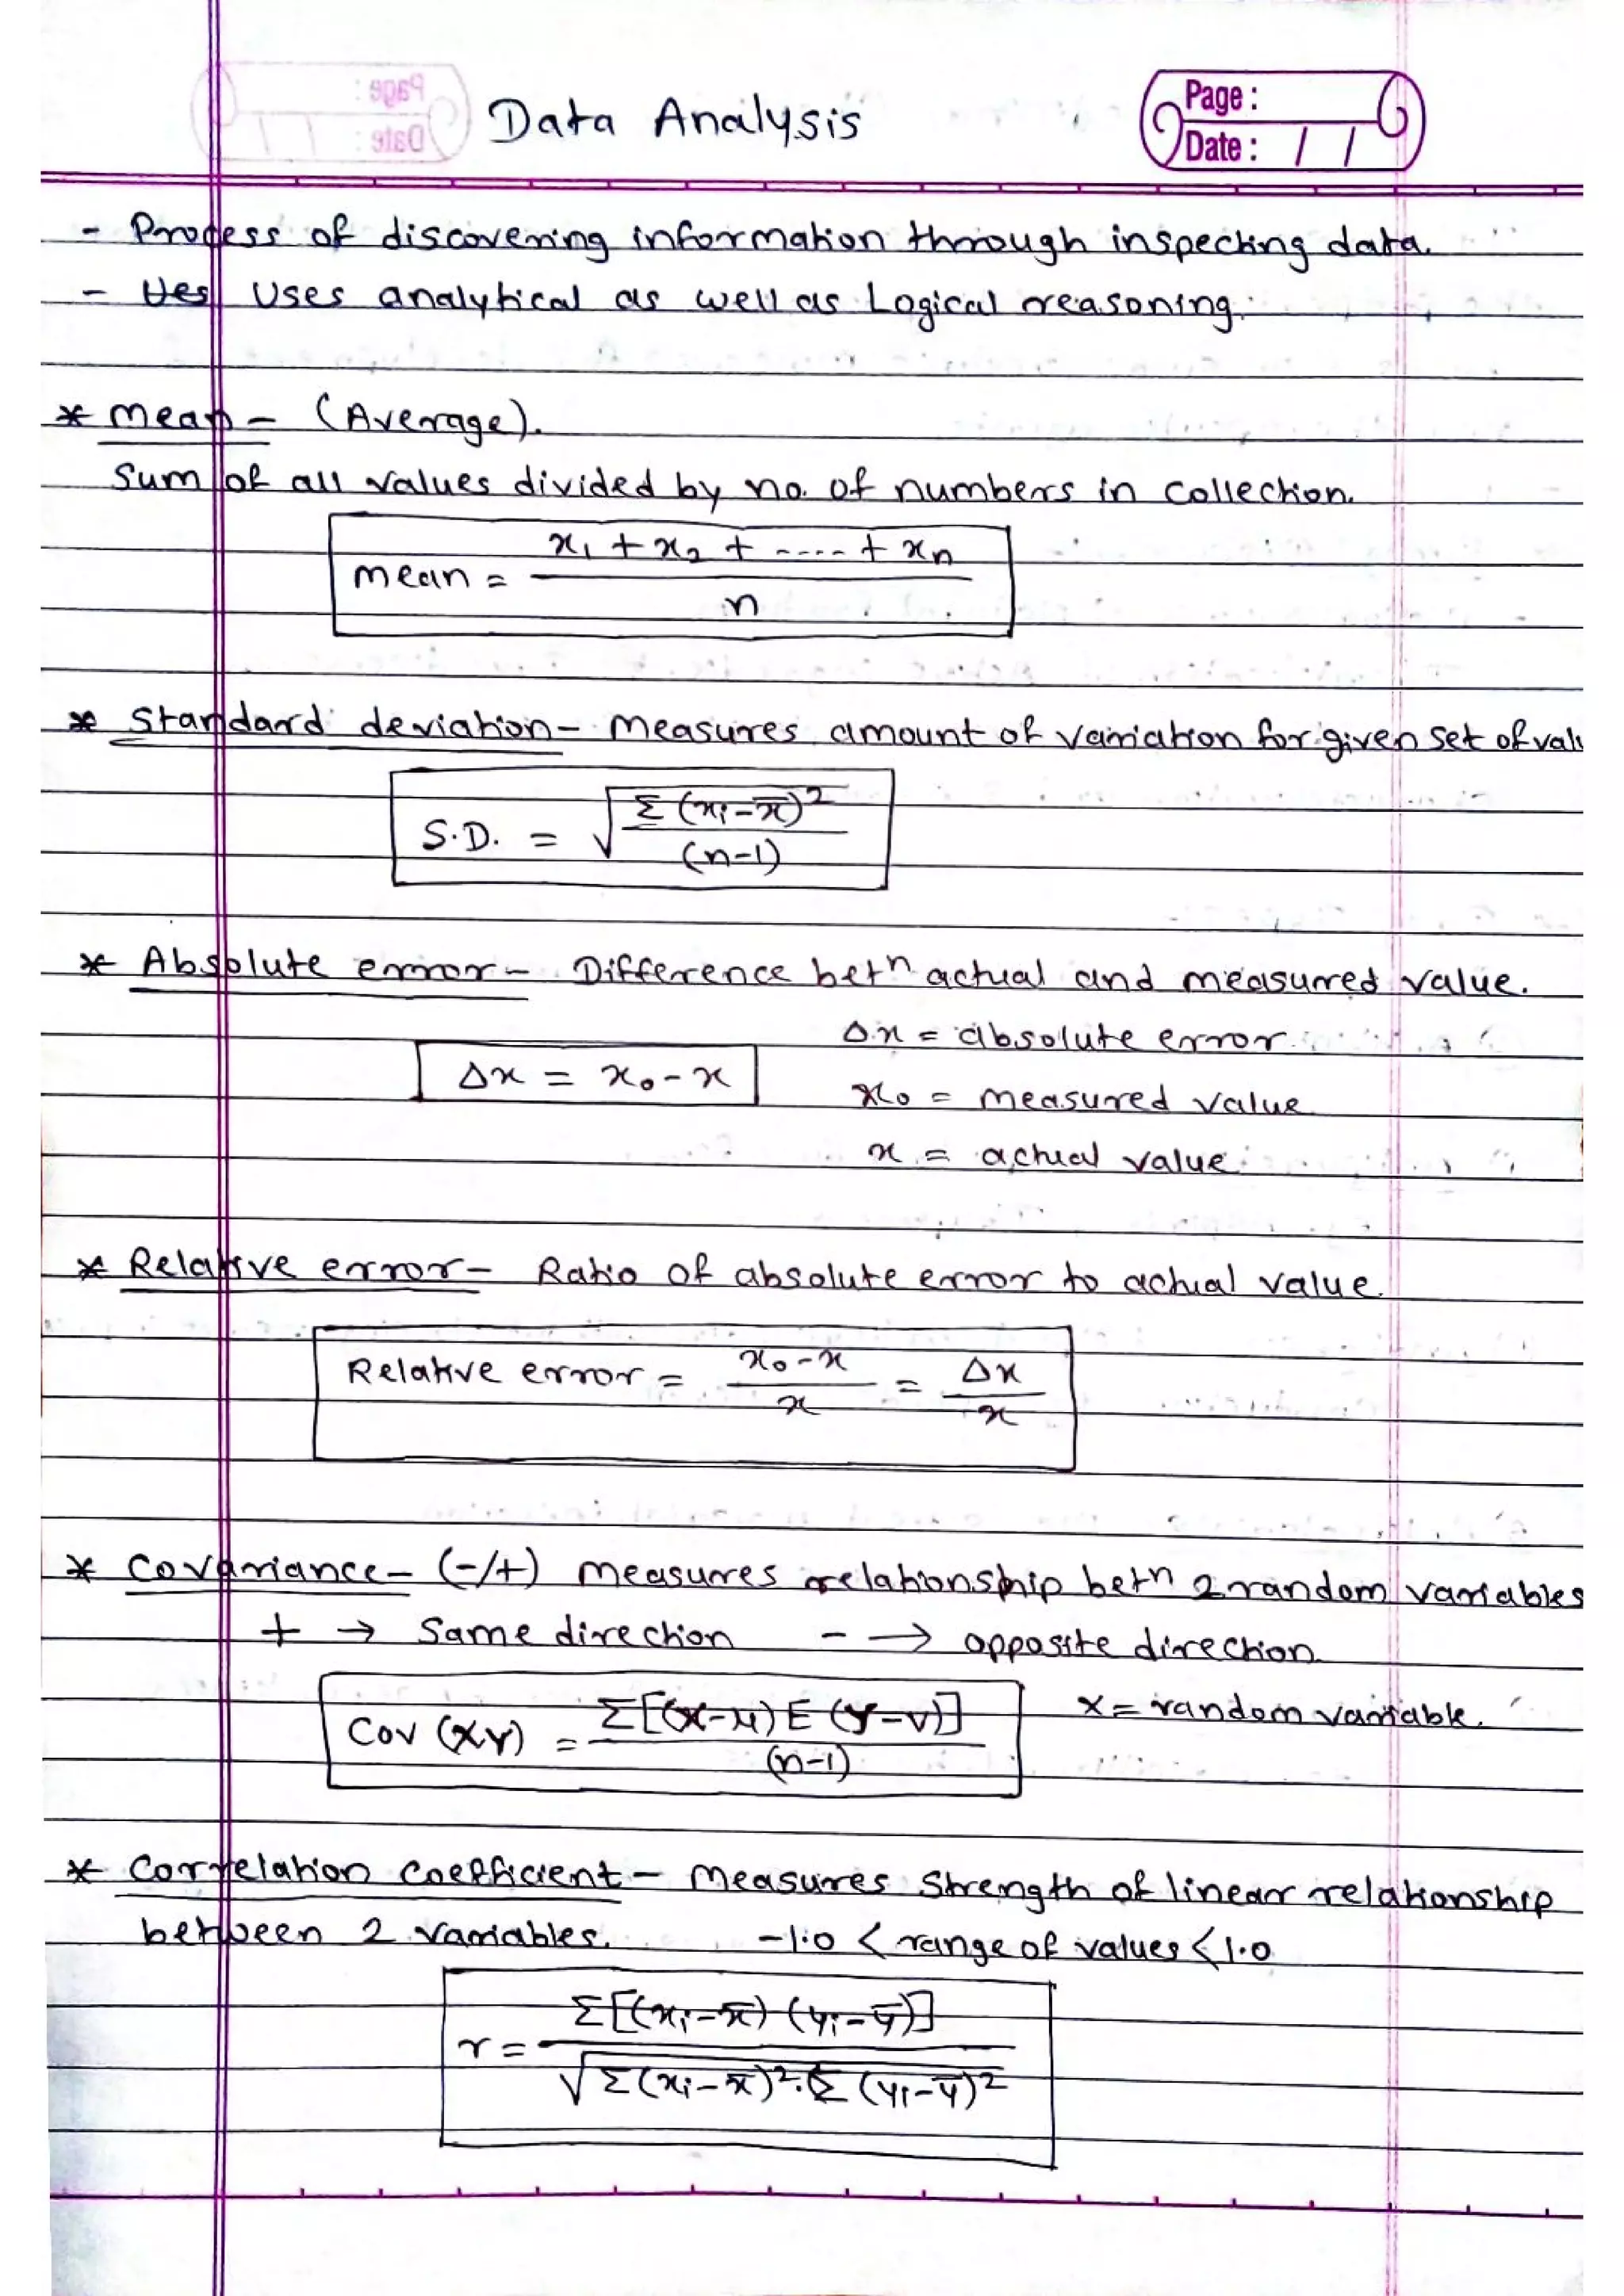 Data Analysis
Page :
Date : / /
- Process of discovering information through inspecting data.
- Uses analytical as well as Logical reasoning.
* mean - (Average).
Sum of all values divided by no. of numbers in collection.
mean = (x₁ + x₂ + ---- + xₙ) / n
* Standard deviation - Measures amount of variation for given set of valu
S.D. = √(Σ(xi - x̄)² / (n-1))
* Absolute error - Difference betⁿ actual and measured value.
Δx = absolute error
Δx = x₀ - x
x₀ = measured value
x = actual value
* Relative error - Ratio of absolute error to actual value.
Relative error = (x₀ - x) / x = Δx / x
* Covariance - (-/+) measures relationship betⁿ 2 random variables
+ → Same direction - → opposite direction
Cov (XY) = Σ[(X-μ) E (Y-v)] / (n-1) x = random variable.
* Correlation Coefficient - Measures Strength of linear relationship
between 2 variables. -1.0 < range of values < 1.0
r = Σ[(xi - x̄) (yi - ȳ)] / √(Σ(xi - x̄)² . Σ(yi - ȳ)²)